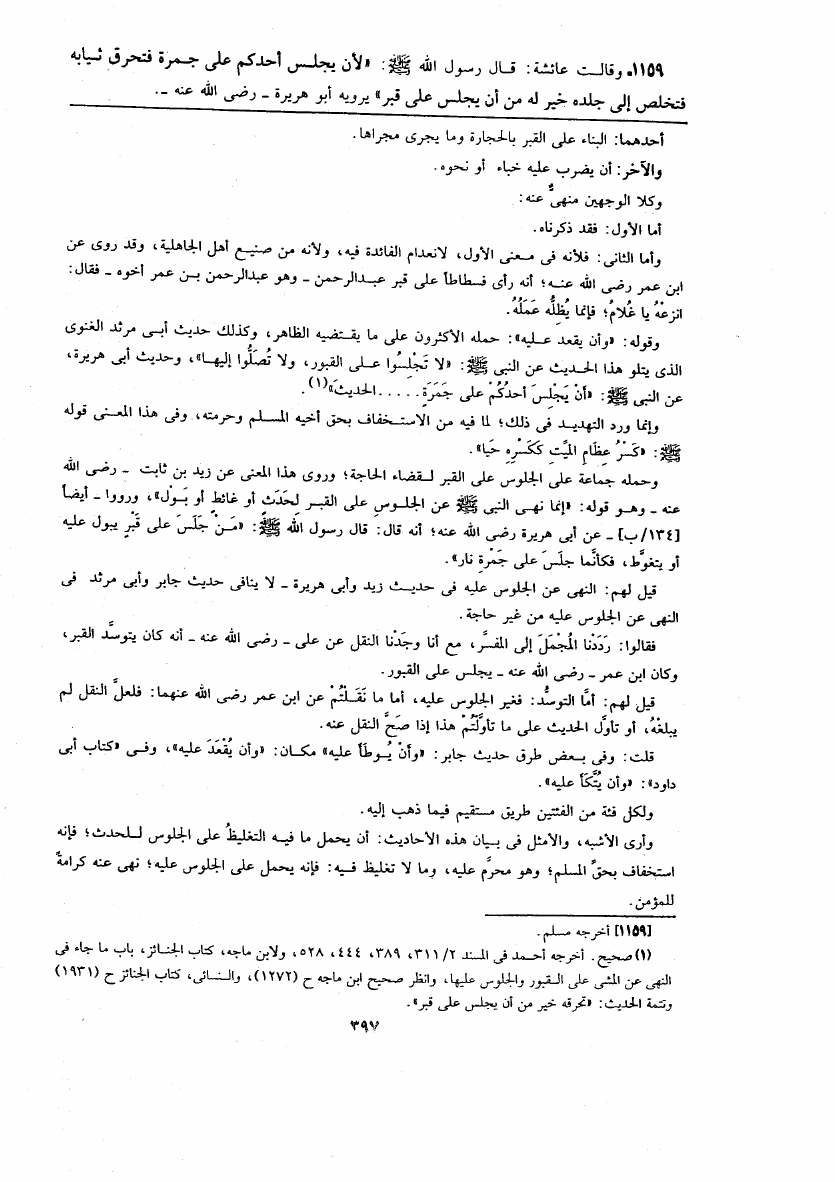 ١١٥٩. وقالت عائشة: قال رسول الله ﷺ: «لأن يجلس أحدكم على جمرة فتحرق ثيابه
فتخلص إلى جلده خير له من أن يجلس على قبر» يرويه أبو هريرة ـ رضى الله عنه ـ.
أحدهما: البناء على القبر بالحجارة وما يجرى مجراها.
والآخر: أن يضرب عليه خباء أو نحوه.
وكلا الوجهين منهىٌّ عنه:
أما الأول: فقد ذكرناه.
وأما الثانى: فلأنه فى معنى الأول، لانعدام الفائدة فيه، ولأنه من صنيع أهل الجاهلية، وقد روى عن
ابن عمر رضى الله عنه؛ أنه رأى فسطاطاً على قبر عبدالرحمن ـ وهو عبدالرحمن بن عمر أخوه ـ فقال:
انزعْهُ يا غُلامُ؛ فإنما يُظِلُّه عَمَلُهُ.
وقوله: «وأن يقعد عليه»: حمله الأكثرون على ما يقتضيه الظاهر، وكذلك حديث أبى مرثد الغنوى
الذى يتلو هذا الحديث عن النبى ﷺ: «لا تَجْلِسُوا على القبور، ولا تُصَلُّوا إليها»، وحديث أبى هريرة،
عن النبى ﷺ: «أنْ يَجْلِسَ أحدُكُمْ على جَمَرَةِ.....الحديثَ»(١).
وإنما ورد التهديد فى ذلك؛ لما فيه من الاستخفاف بحق أخيه المسلم وحرمته، وفى هذا المعنى قوله
ﷺ: «كَسْرُ عِظَامِ المَيِّتِ كَكَسْرِهِ حَيا».
وحمله جماعة على الجلوس على القبر لقضاء الحاجة؛ وروى هذا المعنى عن زيد بن ثابت ـ رضى الله
عنه ـ وهو قوله: «إنما نهى النبى ﷺ عن الجلوس على القبر لِحَدَثٍ أو غائطٍ أو بَوْل»، ورووا ـ أيضاً
[١٣٤/ب] ـ عن أبى هريرة رضى الله عنه؛ أنه قال: قال رسول الله ﷺ: «مَنْ جَلَسَ على قَبْرٍ يبول عليه
أو يتغوَّط، فكأنَّما جلَسَ على جَمْرةِ نار».
قيل لهم: النهى عن الجلوس عليه فى حديث زيد وأبى هريرة ـ لا ينافى حديث جابر وأبى مرثد فى
النهى عن الجلوس عليه من غير حاجة.
فقالوا: رَدَدْنا المُجْمَلَ إلى المفسَّر، مع أنا وجَدْنا النقل عن على ـ رضى الله عنه ـ أنه كان يتوسَّد القبر،
وكان ابن عمر ـ رضى الله عنه ـ يجلس على القبور.
قيل لهم: أمَّا التوسُّد: فغير الجلوس عليه، أما ما نَقَلْتُمْ عن ابن عمر رضى الله عنهما: فلعلَّ النقل لم
يبلغْهُ، أو تأوَّل الحديث على ما تأوَّلْتُمْ هذا إذا صَحَّ النقل عنه.
قلت: وفى بعض طرق حديث جابر: «وأنْ يُوطَأ عليه» مكان: «وأن يُقْعَدَ عليه»، وفى «كتاب أبى
داود»: «وأن يُتَّكَأ عليه».
ولكل فئة من الفئتين طريق مستقيم فيما ذهب إليه.
وأرى الأشبه، والأمثل فى بيان هذه الأحاديث: أن يحمل ما فيه التغليظُ على الجلوس للحدث؛ فإنه
استخفاف بحقِّ المسلم؛ وهو محرَّم عليه، وما لا تغليظ فيه: فإنه يحمل على الجلوس عليه؛ نهى عنه كرامةً
للمؤمن.
[١١٥٩] أخرجه مسلم.
(١) صحيح. أخرجه أحمد فى المسند ٣١١/٢، ٣٨٩، ٤٤٤، ٥٢٨، ولابن ماجه، كتاب الجنائز، باب ما جاء فى
النهى عن المشى على القبور والجلوس عليها، وانظر صحيح ابن ماجه ح (١٢٧٢)، والنسائى، كتاب الجنائز ح (١٩٣١)
وتتمة الحديث: «تحرقه خير من أن يجلس على قبر».
٣٩٧